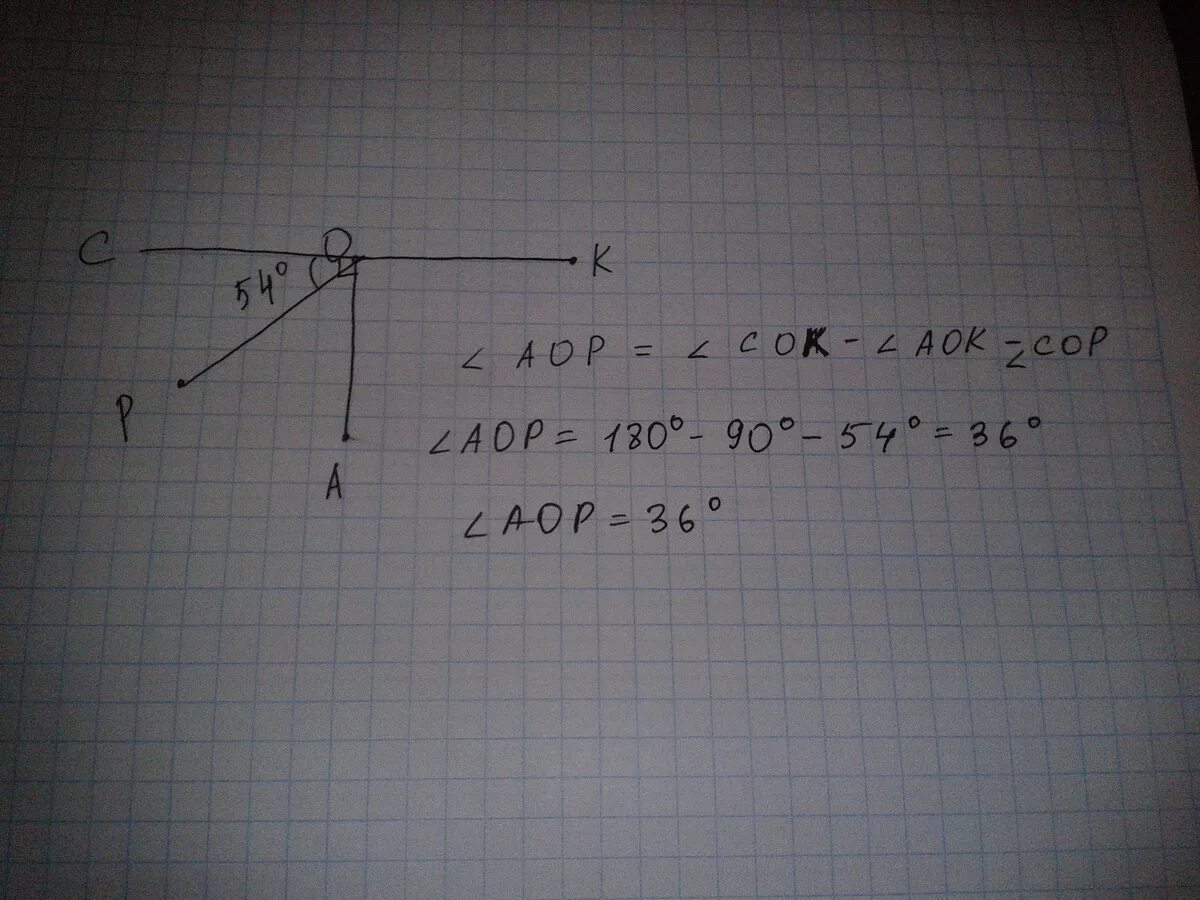 C O K
54°
P
A
∠ AOP = ∠ COK - ∠ AOK - ∠COP
∠AOP = 180° - 90° - 54° = 36°
∠AOP = 36°